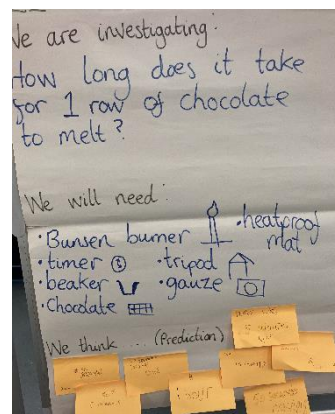 We are investigating:
How long does it take
for 1 row of chocolate
to melt?
We will need:
• Bunsen burner • heatproof mat
• timer • tripod
• beaker • gauze
• Chocolate
We think ... (Prediction)